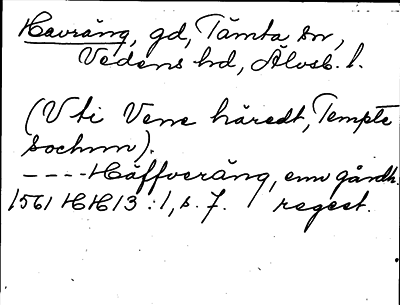 Havräng, gd, Tämta sn,
Vedens hd, Älvsb. l.
(V ti Vene häredt, Tempte
sochnn).
----Häffveräng, enn gårdh.
1561 HH 13:1, s. 7. regest.